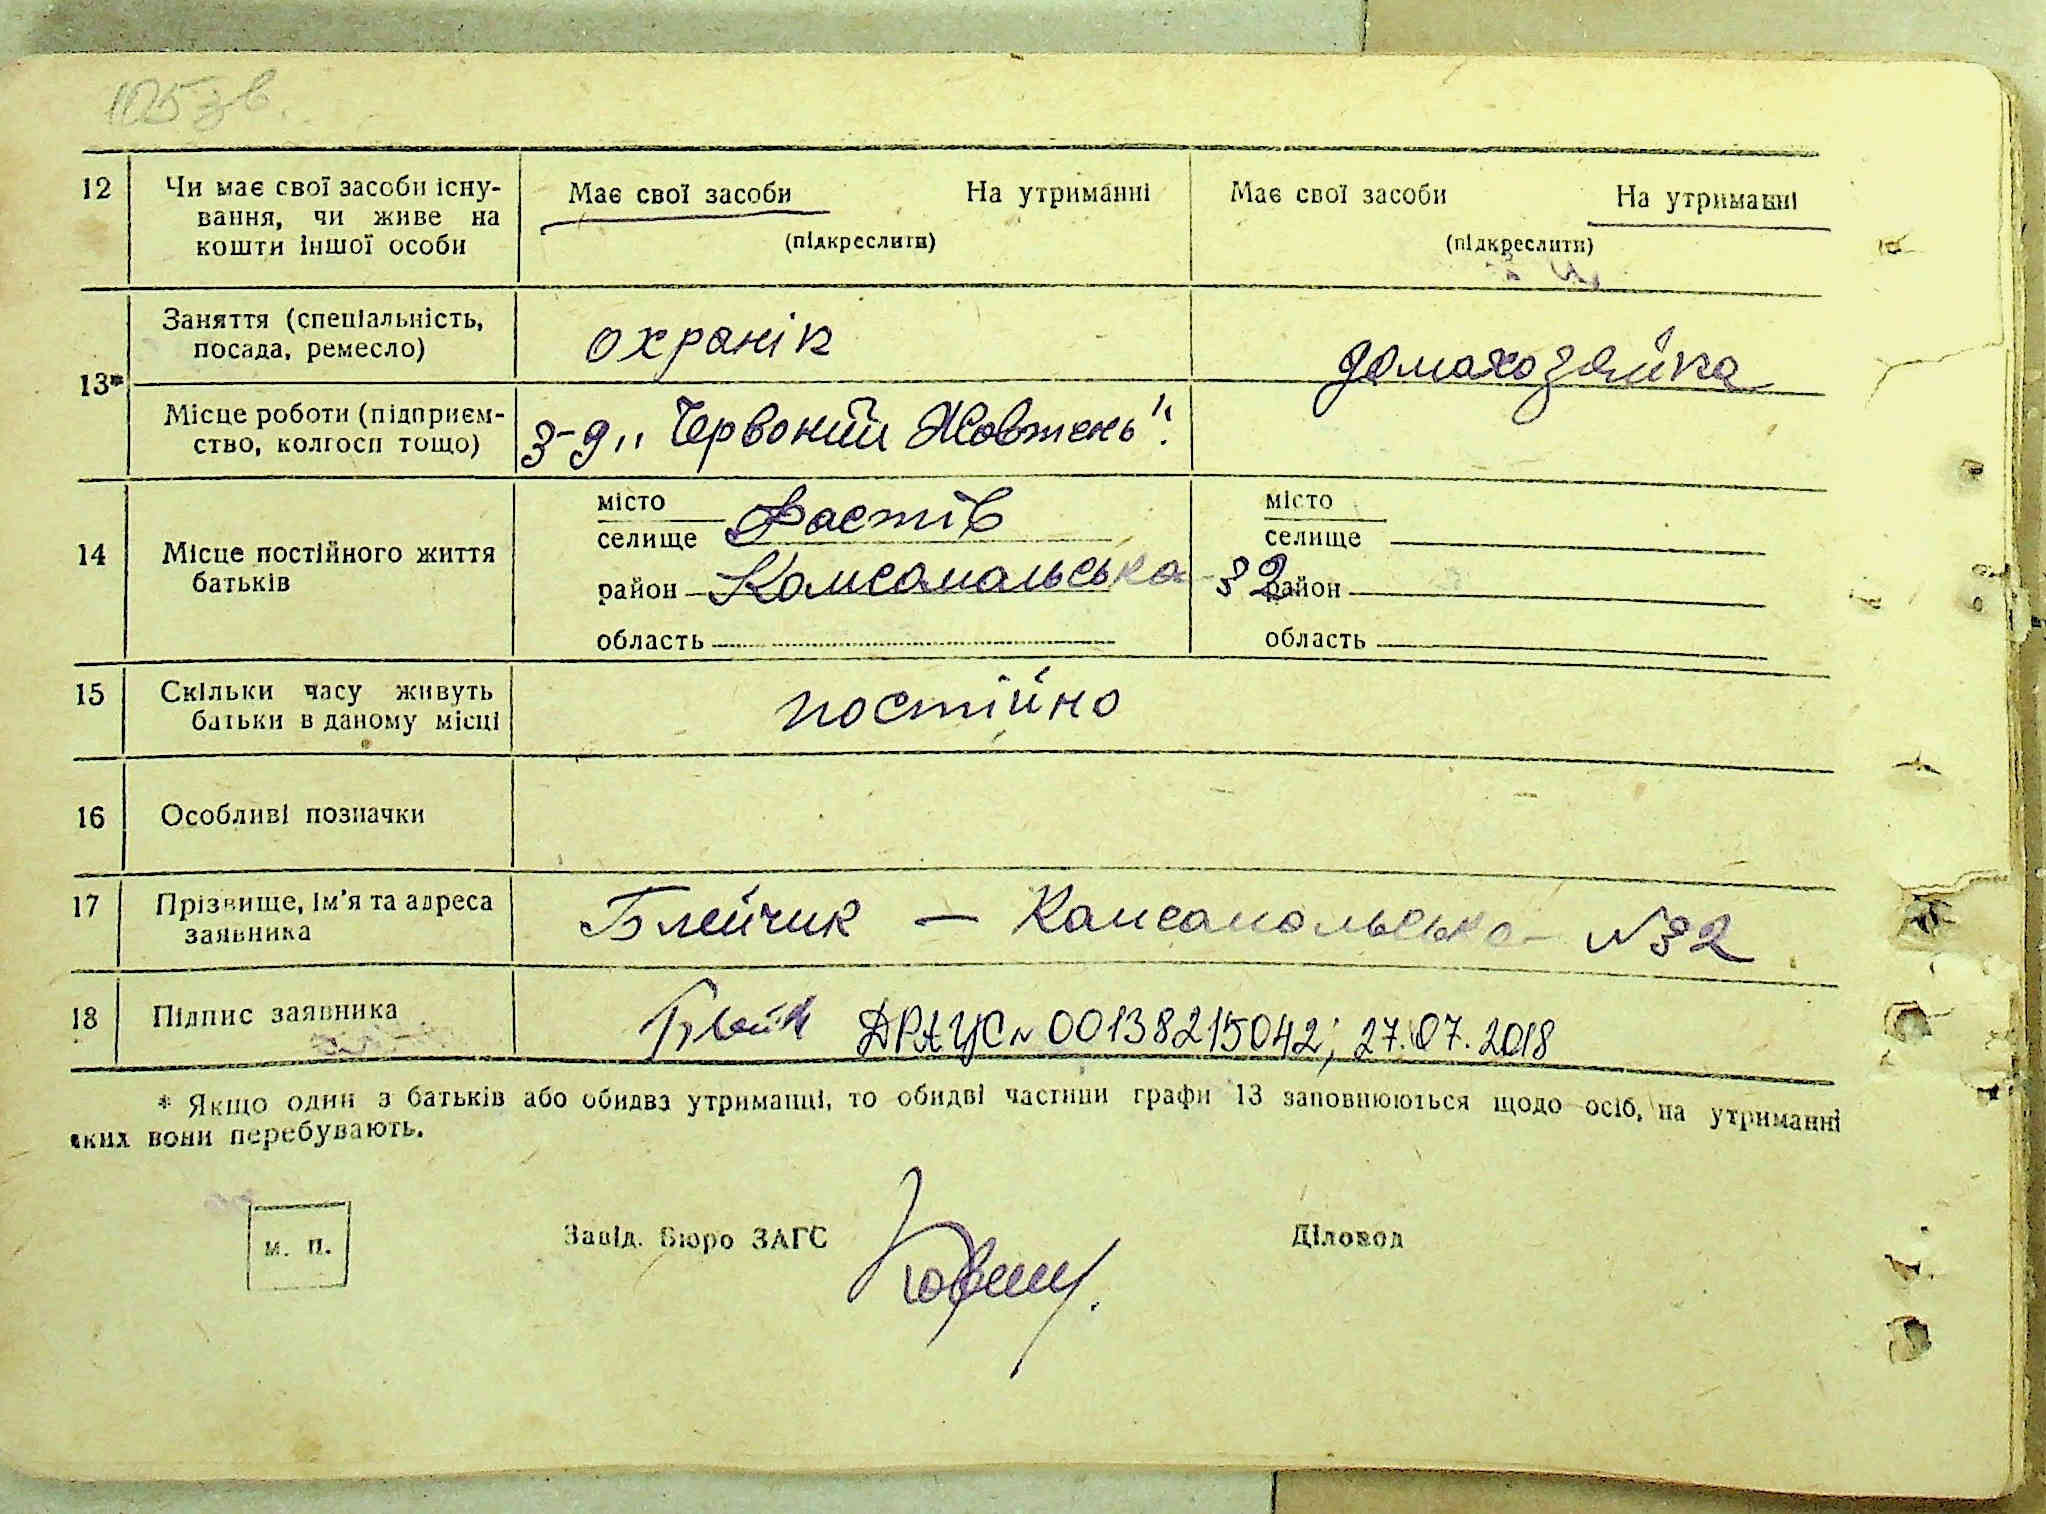 105 зв.
12 Чи має свої засоби існу- Має свої засоби На утриманні Має свої засоби На утриманні
вання, чи живе на
кошти іншої особи (підкреслити) (підкреслити)
Заняття (спеціальність,
посада, ремесло) охранік домахозяйка
13*
Місце роботи (підприєм-
ство, колгосп тощо) з-д „Червоний Жовтень".
14 Місце постійного життя
батьків
місто
селище Фастів
район Комсомольська - 32
область
місто
селище
район
область
15 Скільки часу живуть
батьки в даному місці постійно
16 Особливі позначки
17 Прізвище, ім'я та адреса
заявника Блейчик — Комсомольська - №32
18 Підпис заявника ДРАЦС № 00138215042; 27.07.2018
* Якщо один з батьків або обидва утриманці, то обидві частини графи 13 заповнюються щодо осіб, на утриманні
яких вони перебувають.
м. п. Завід. Бюро ЗАГС Діловод